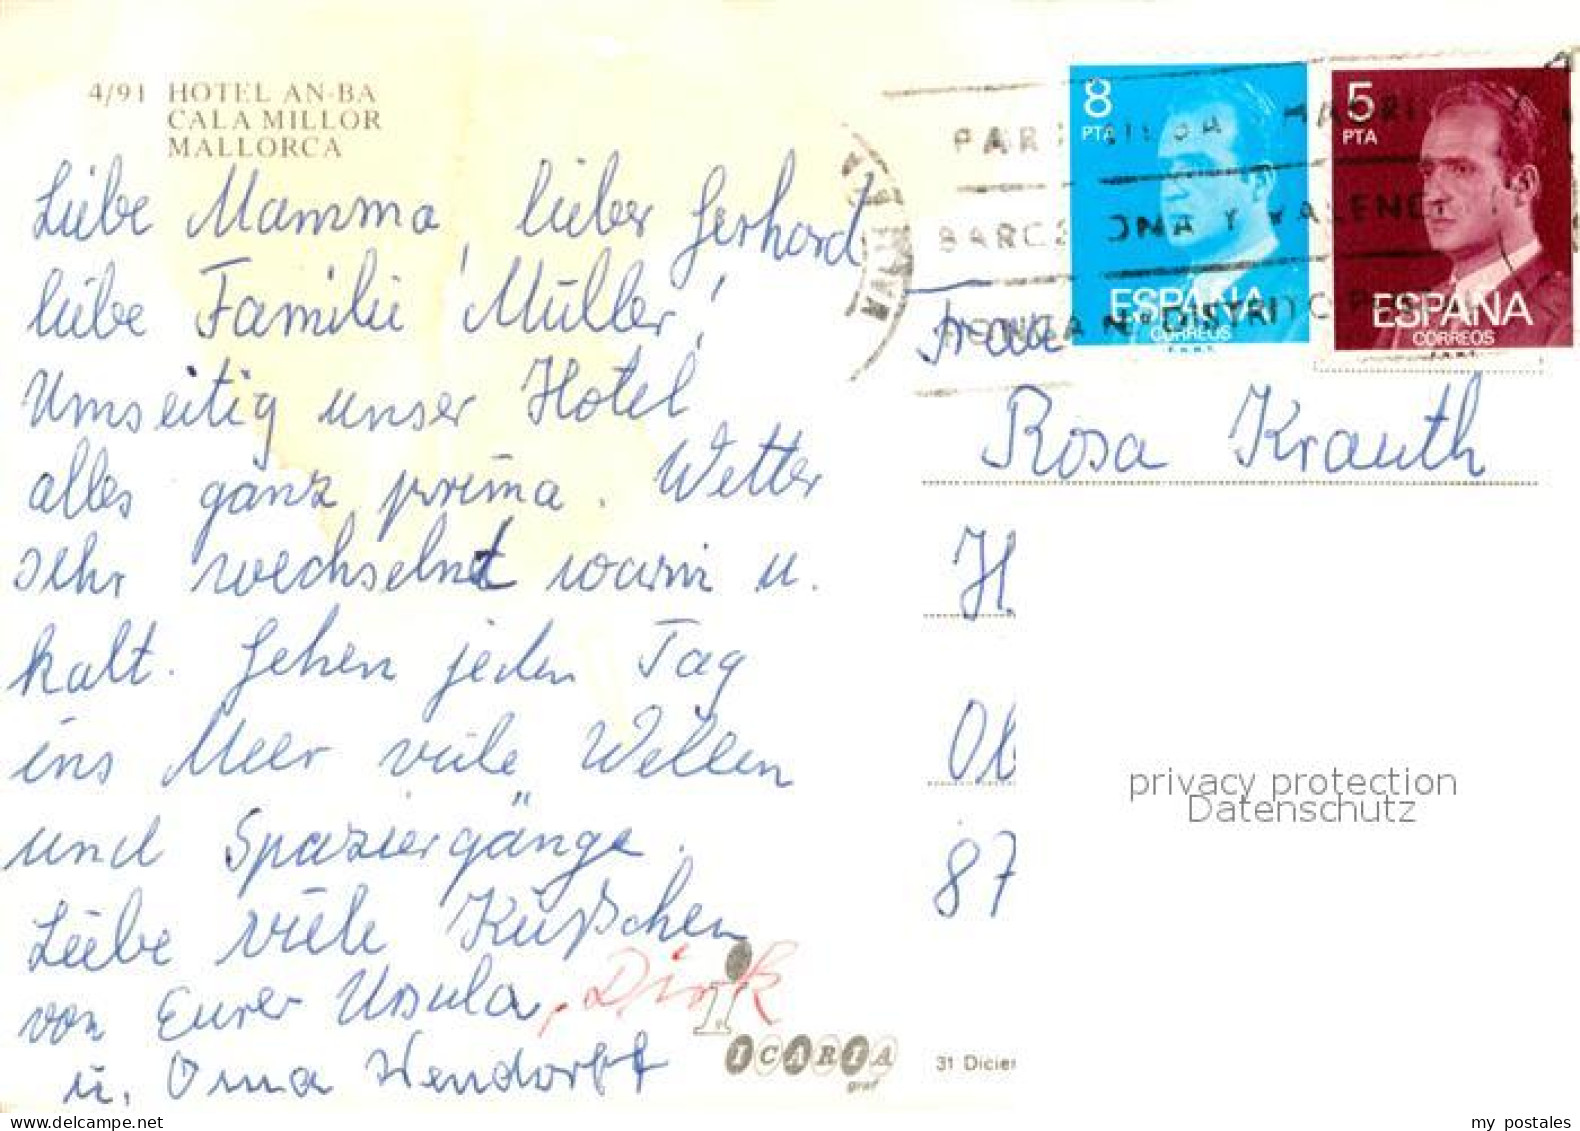 4/91 HOTEL AN-BA
CALA MILLOR
MALLORCA
Liebe Mamma, lieber Gerhard
liebe Familie Müller!
Umseitig unser Hotel
alles ganz prima. Wetter
sehr wechselnt warm u.
kalt. Gehen jeden Tag
ins Meer viele Wellen
und Spaziergänge.
Liebe viele Küßchen
von Eurer Ursula, Dirk
u. Oma Wendorff
ICARIA
graf
8
PTA
ESPAÑA
CORREOS
F.N.M.T.
5
PTA
ESPAÑA
CORREOS
F.N.M.T.
BARC ONA Y VALENCI
N° DISTRITO POST
Frau
Rosa Krauth
H
Ol
87
privacy protection
Datenschutz
31 Dicie
my postales